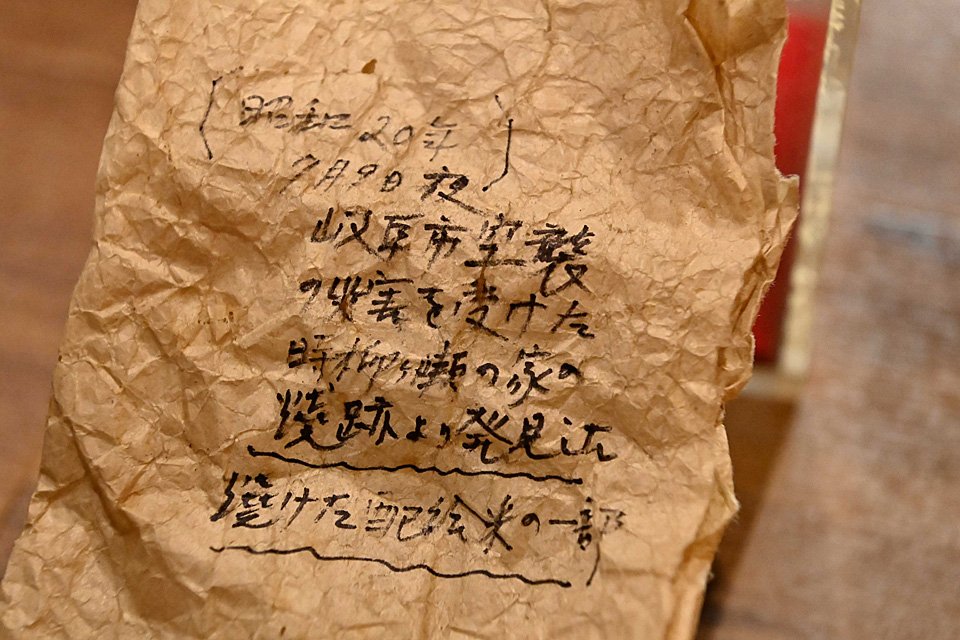 (昭和20年
7月9日夜)
岐阜市空襲
の災害を受けた
時柳ヶ瀬の家の
焼跡より発見した
焼けた配給米の一部